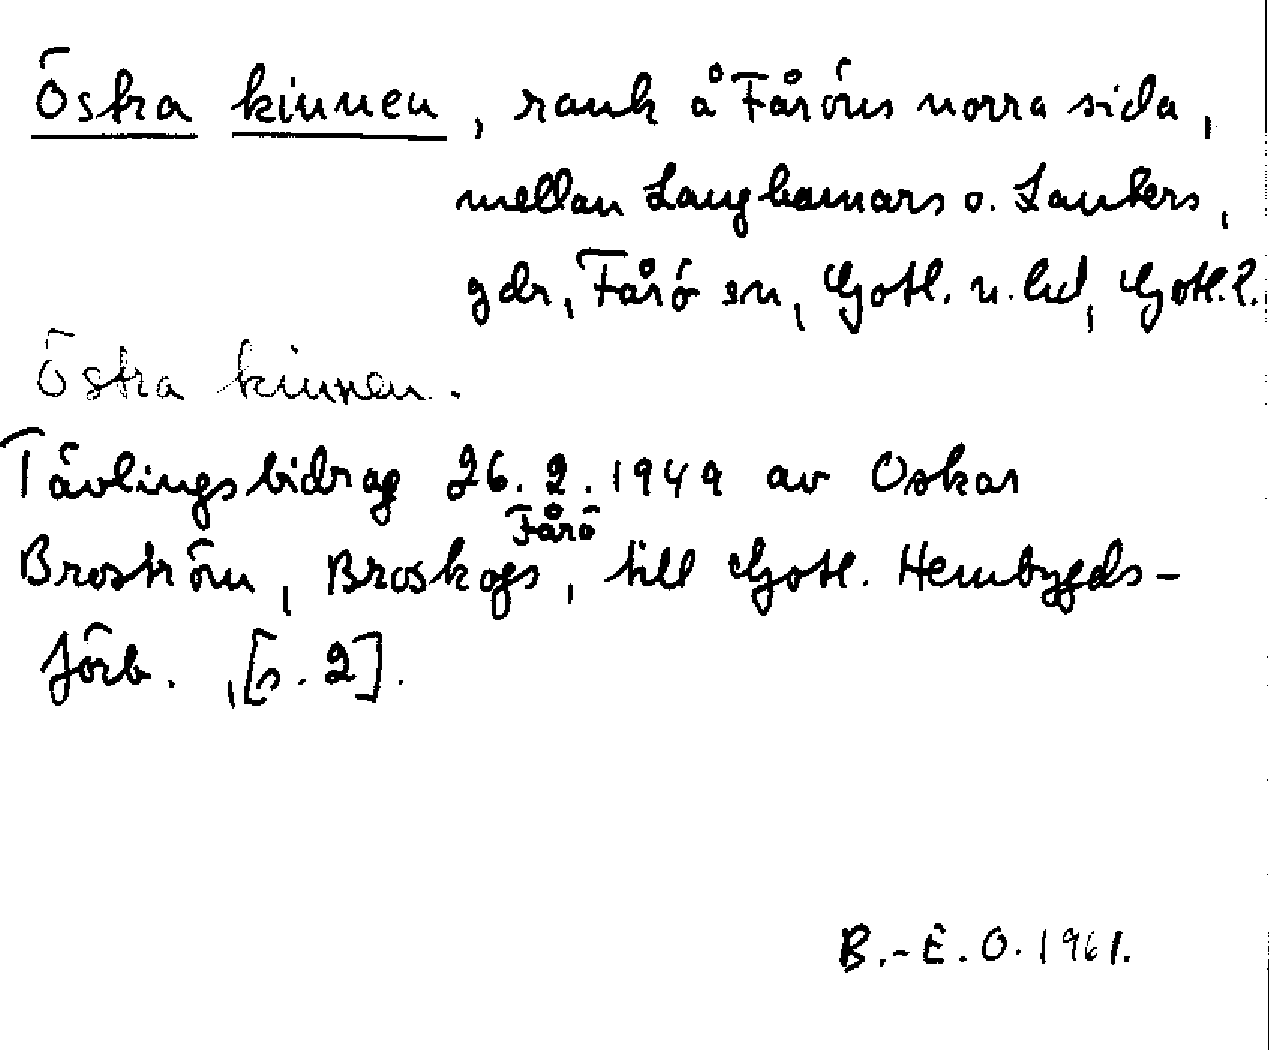 Östra kinnen, rauk å Fåröns norra sida,
mellan Langhamars o. Lauters,
gdr, Fårö sn, Gotl. n. hd, Gotl. l.
Östra kinnen.
Tävlingsbidrag 26.2.1949 av Oskar
Fårö
Broström, Broskogs, till Gotl. Hembygds-
förb., [s. 2].
B.-E. O. 1961.